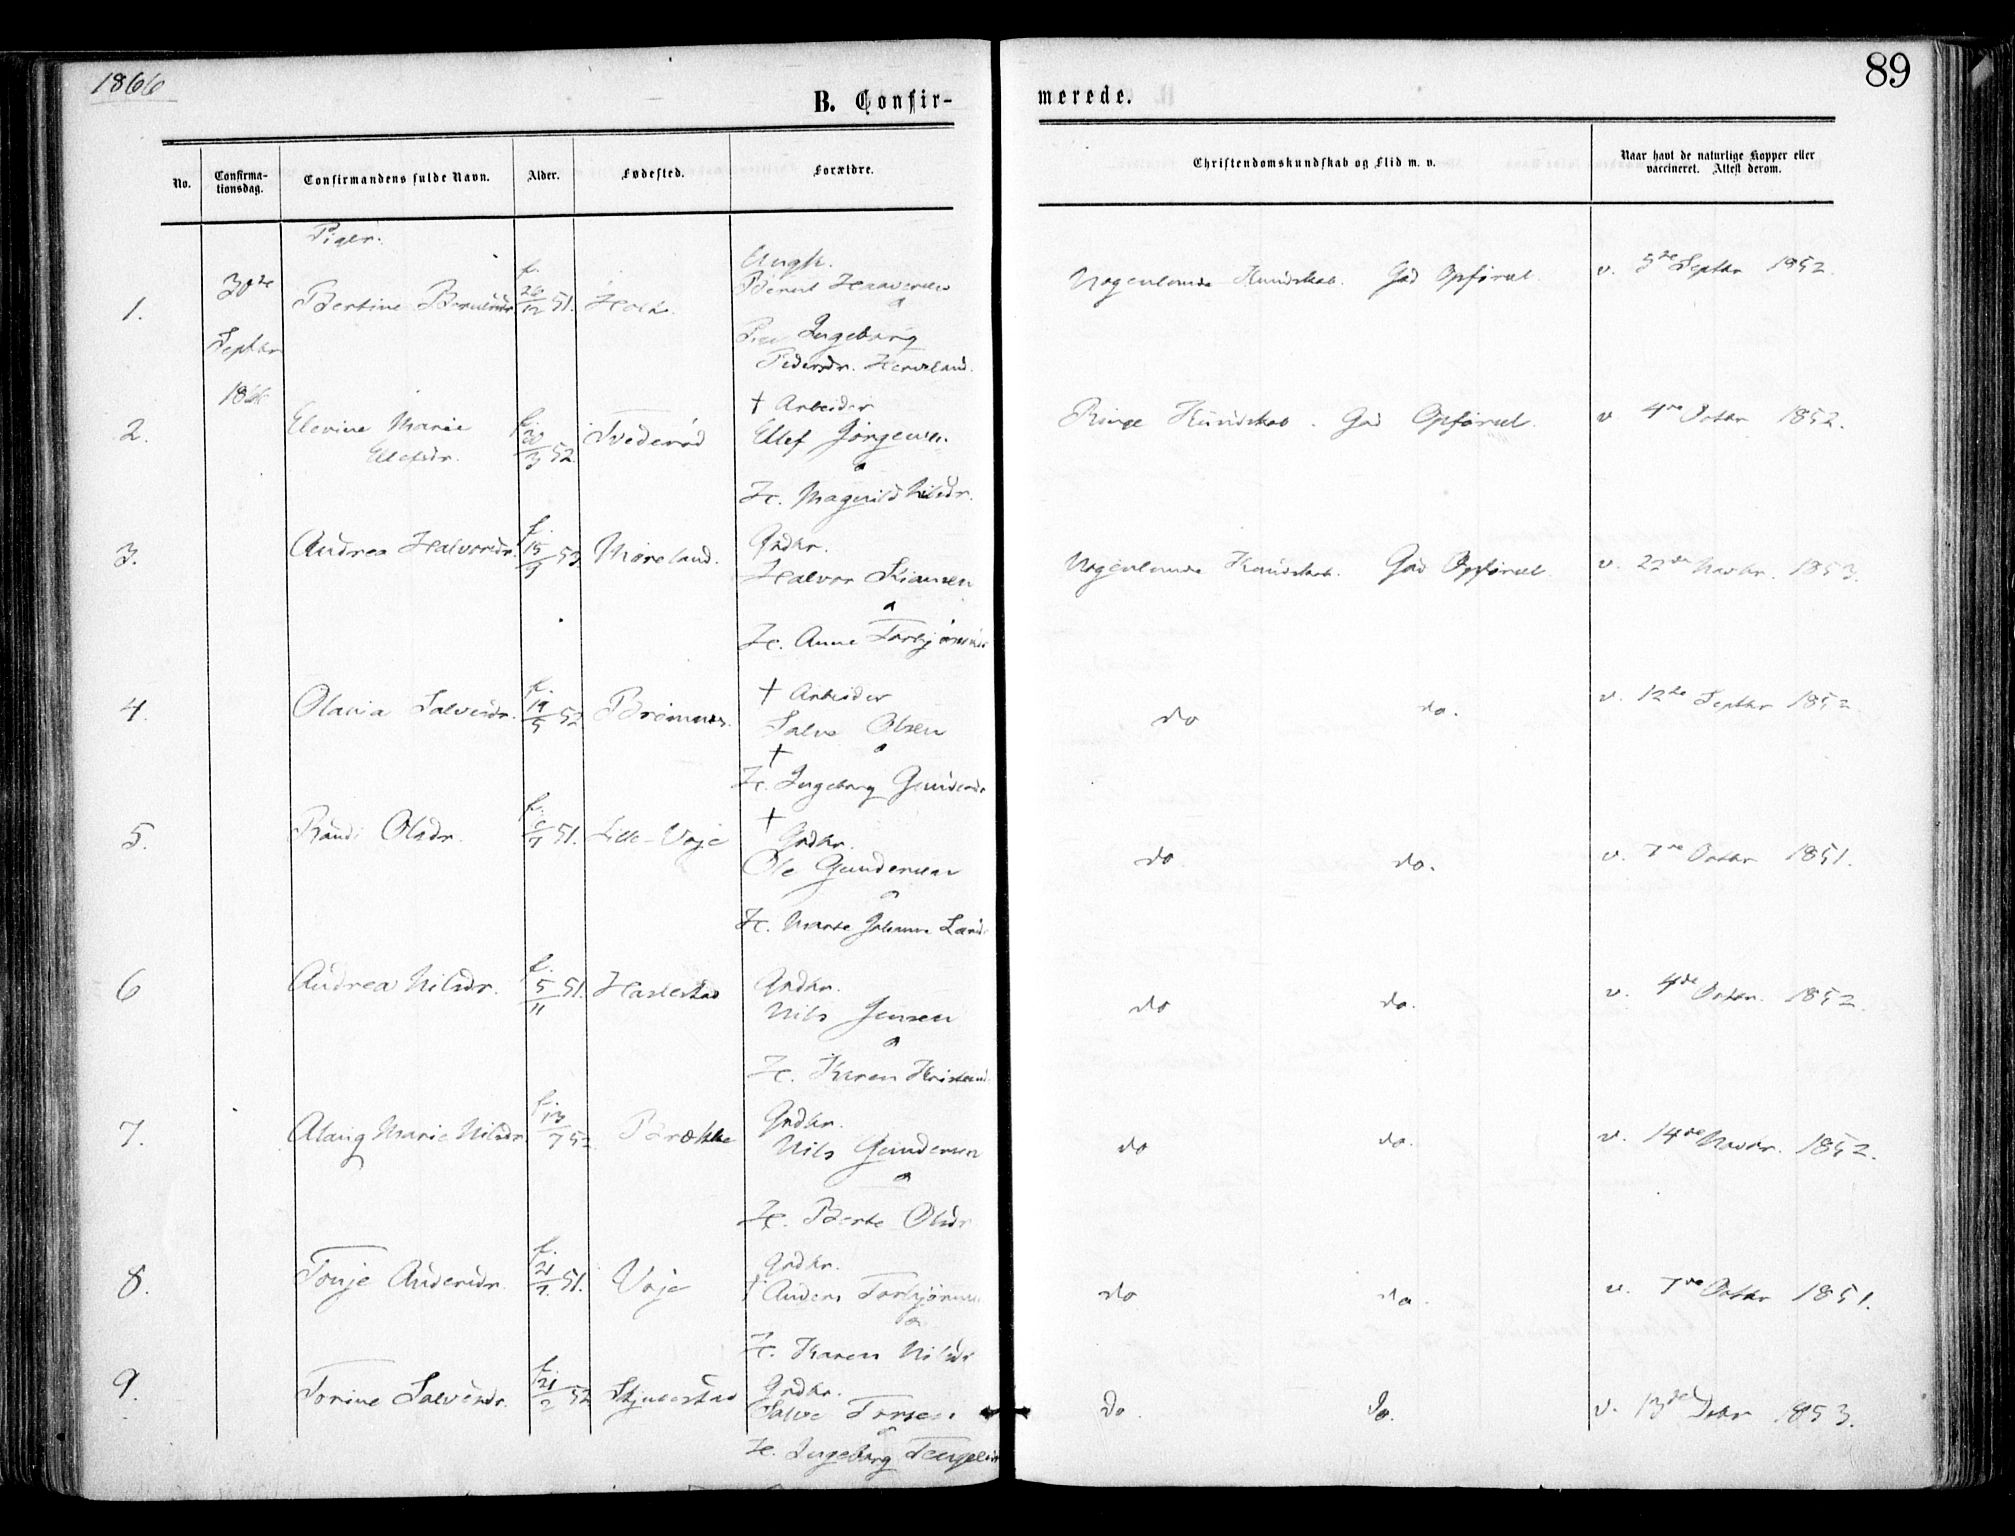 1866
89
B. Confir-
merede.
No.
Confirma-
tionsdag.
Confirmandens fulde Navn.
Alder.
Fødested.
Forældre.
Christendomskundskab og Flid m. v.
Naar havt de naturlige Kopper eller
vaccineret. Attest derom.
Piger.
30te
Septbr
1866
1.
Bertine
f. 26/12 51.
Holt.
Ungk.
Bernt
o
Ingeborg
Pedersdr. Herveland.
Nogenlunde Kundskab. God Opførsel.
v. 5te Septbr 1852.
2.
Elevine Marie
Elefsdr.
f. 20/3 52
Tvederød
† Arbeider
Ellef Jørgensen
o
H. Magnild Nilsdr.
Ringe Kundskab. God Opførsel.
v 4de Octbr 1852.
3.
Andrea Halvorsdr.
f. 15/9 53
Møreland.
Grdbr.
Halvor
o
H. Anne Torbjørnsdr
Nogenlunde Kundskab. God Opførsel.
v. 22de Novbr. 1853.
4.
Olavia Salvesdr.
f. 19/5 52
† Arbeider
Salve Olsen
o
†
H. Ingeborg
do do.
v. 12te Septbr 1852
5.
Randi Olsdr.
51.
Lille-Voje
†
Grdbr.
Ole Gundersen
o
H. Marte
do. do.
v. 7de Octbr 1851.
6
Andrea Nilsdr.
f. 5/11 51.
Haslestad
Grdbr.
Nils Jensen
o
H. Karen
do do.
v. 4de Octbr. 1852.
7.
Marie Nilsdr
f. 13/7 52
Brække
Grdbr.
Nils Gundersen
o
H. Berte Olsdr
do do.
v. 14de Novbr. 1852.
8.
Tonje Andersdr.
f. 21/7. 51.
Voje
Grdbr.
† Anders Torbjørnsen
o
H. Karen Nilsdr
do do.
v. 7de Octbr 1851.
9.
Torine Salvesdr.
f. 21/2 52
Grdbr.
Salve
o
H. Ingeborg
Do. Do.
v. 13de 1853.